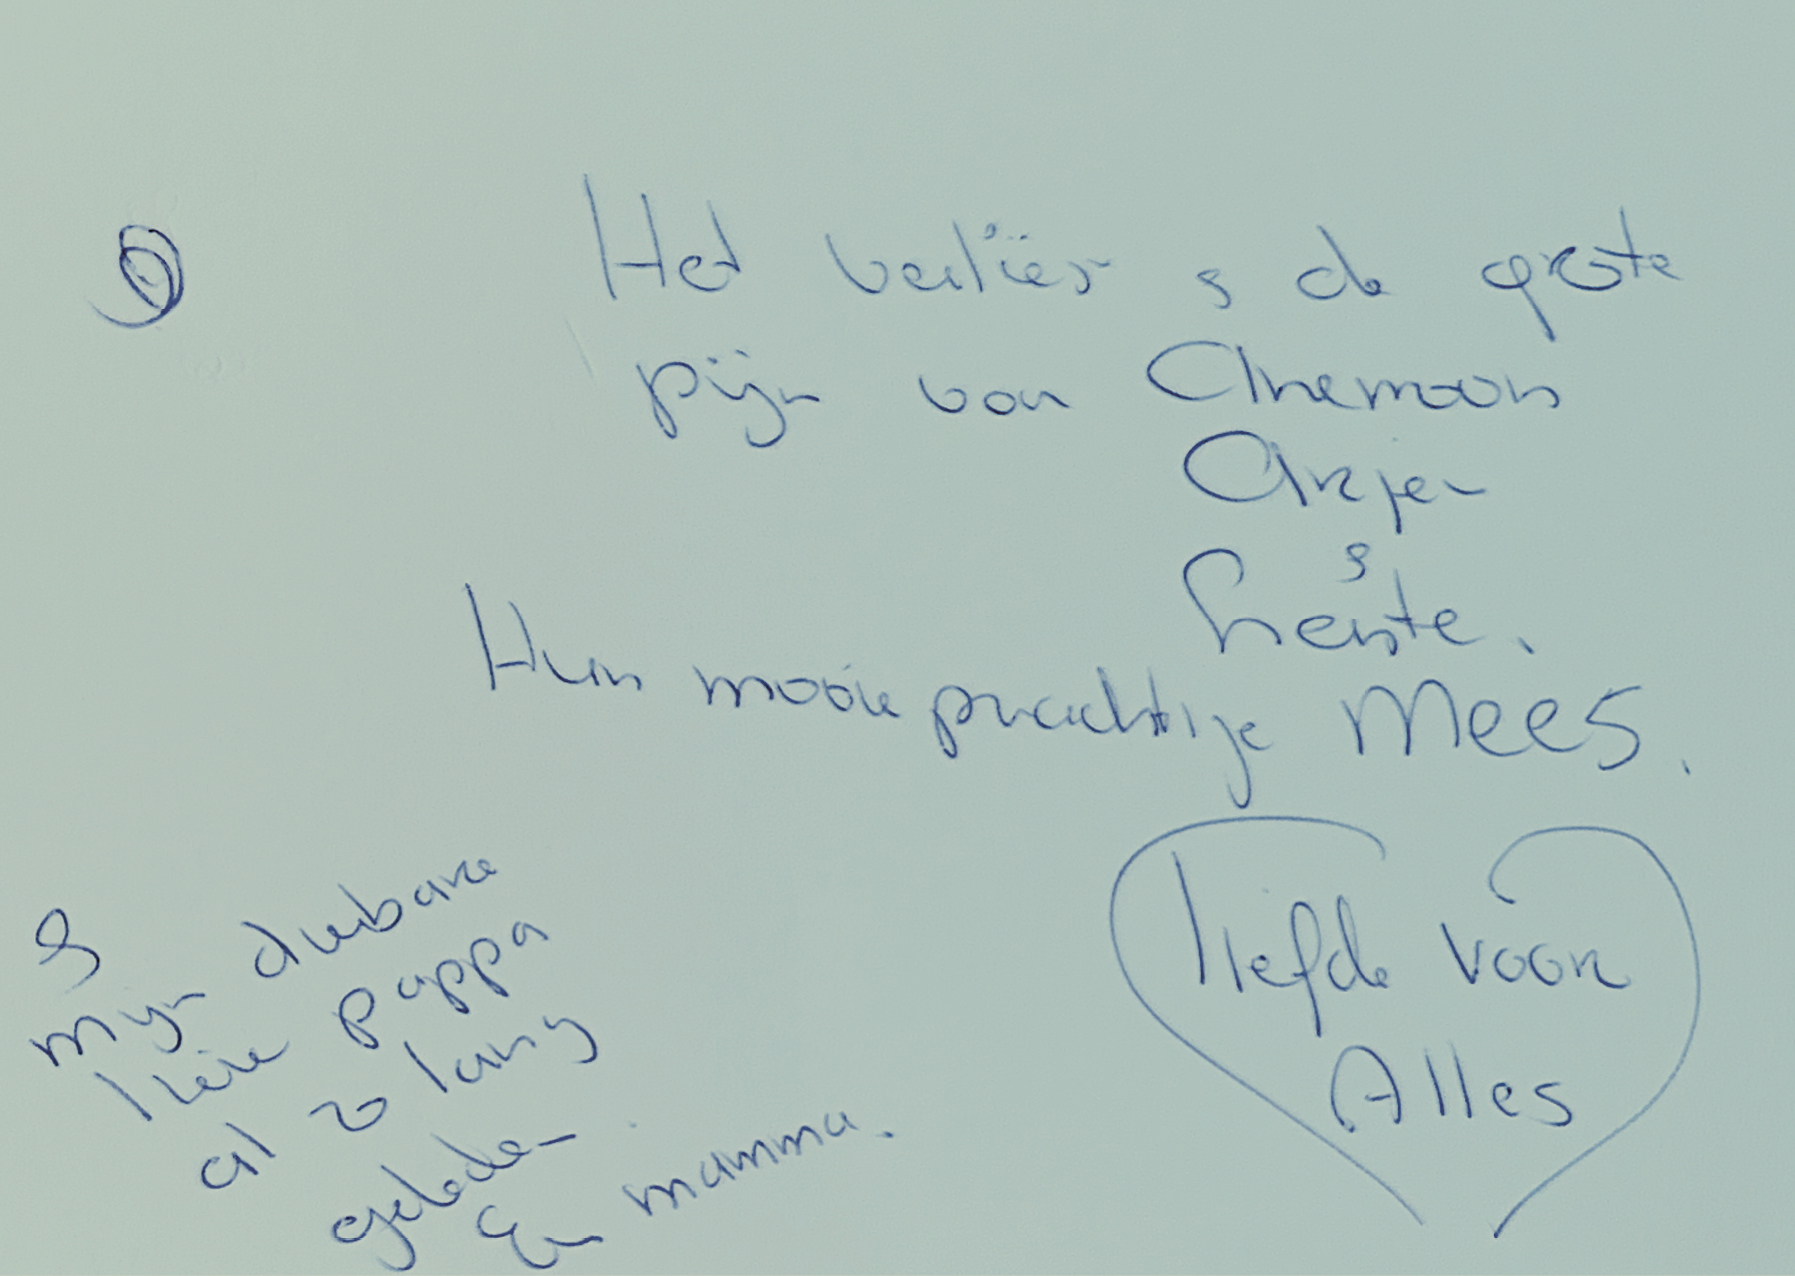 Het verlies & de grote
pijn van Anemoon
Arjen
&
Hun mooie prachtige Mees.
liefde voor
Alles
&
mijn dierbare
lieve pappa
al zo lang
geleden.
En mamma.